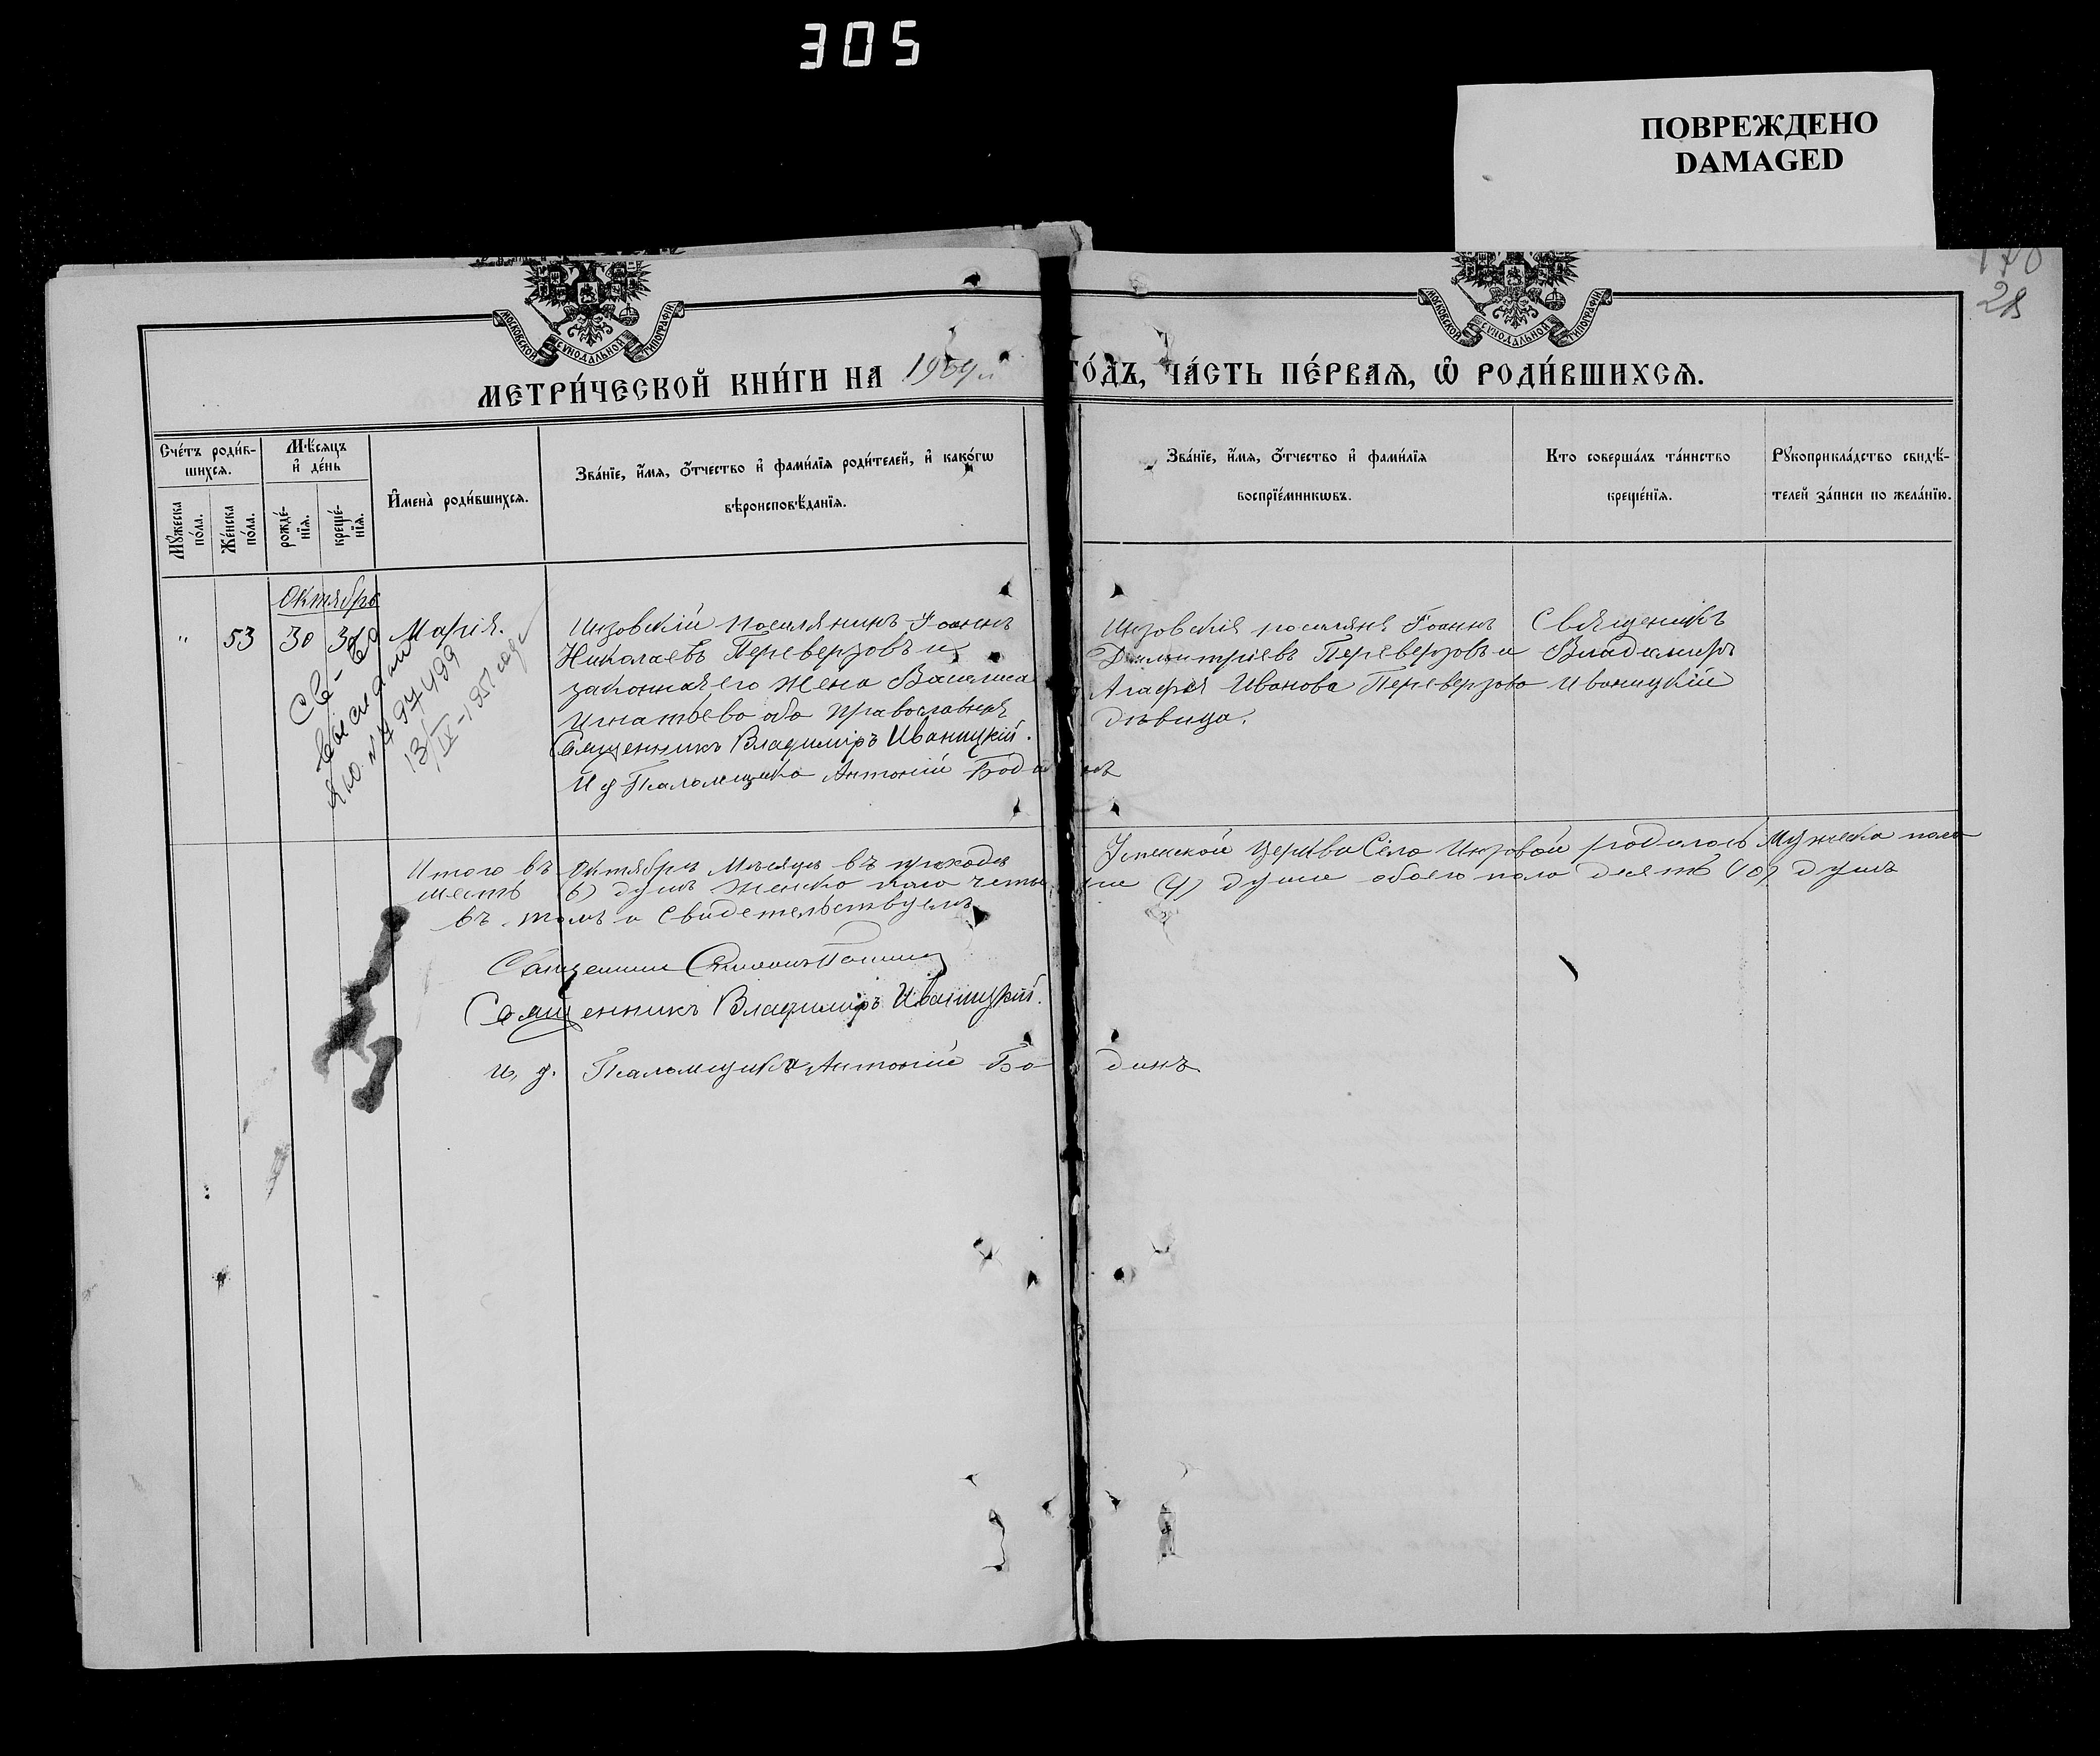 305
ПОВРЕЖДЕНО
DAMAGED
28
МОСКОВСКОЙ СУНОДАЛЬНОЙ ТИПОГРАФІИ
МОСКОВСКОЙ СУНОДАЛЬНОЙ ТИПОГРАФІИ
МЕТРИ́ЧЕСКОЙ КНИ́ГИ НА 1904й ГО́ДЪ, ЧА́СТЬ ПЕ́РВАЯ, Ѽ РОДИ́ВШИХСЯ.
Сче́тъ роди́в-
шихся.
Му́жеска по́ла.
Же́нска по́ла.
Мѣ́сяцъ и҆ де́нь
рожде́-нїя.
креще́-нїя.
И҆мена̀ роди́вшихся.
Зва́нїе, и҆́мя, ѻ҆́тчество и҆ фами́лїя роди́телей, и҆ како́гѡ
вѣроисповѣ́данїя.
Зва́нїе, и҆́мя, ѻ҆́тчество и҆ фами́лїя
воспрїе́мникѡвъ.
Кто соверша́лъ та́инство
креще́нїя.
Рꙋкоприкла́дство свидѣ́-
телей за́писи по жела́нїю.
Октябрь
" 53 30 Марія.
Св-во
выслано
13/IV-1951 года
Инзовскій поселянинъ Іоаннъ
Николаевъ Переверзовъ и
законная его жена Василиса
Игнатьева оба православные
Священникъ Владиміръ Иваницкій.
И д Псаломщика Антоній
Инзовскія поселяне Іоаннъ
Димитріевъ Переверзовъ и
Агафія Иванова Переверзова
дѣвица.
Священикъ
Владимиръ
Иваницкій
Итого въ Октябрѣ мѣсяцѣ въ приходѣ Успенской церкви Села Инзовой родилось мужеска пола
шесть (6) душъ женска пола четыре (4) души обоего пола десять (10) душъ
въ томъ и свидетельствуемъ
Священникъ
Священникъ Владиміръ Иваницкій.
и, д. Псаломщика Антоній